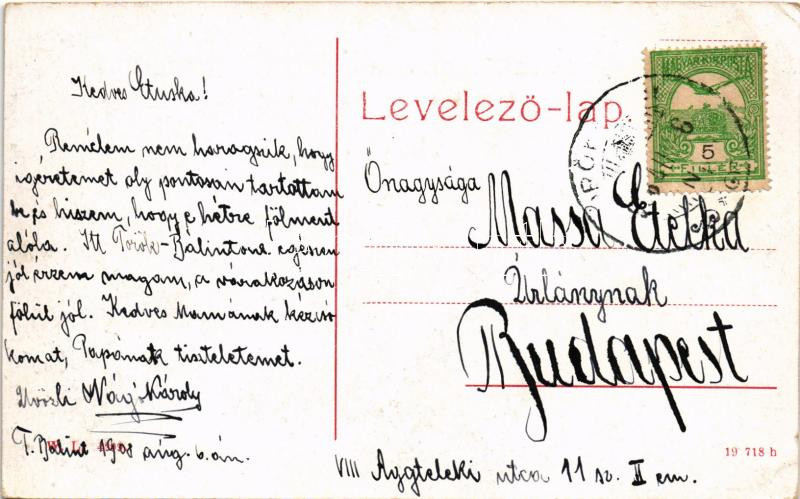 Kedves Etuska!
Remélem nem haragszik, hogy
igéretemet oly pontosan tartottam
be és hiszem, hogy e hétre fölment
alóla. Itt Török-Bálinton egészen
jól érzem magam, a várakozáson
fölül jól. Kedves Mamának kézcsó
komat, Papának tiszteletemet.
Üdvözli Nagy Károly
T. Bálint 1908 aug. 6.án.
Levelező-lap.
MAGYAR KIR. POSTA
5
FILLÉR
Önagysága
Massa Etelka
Úrlánynak
Budapest
19 718 h
VIII Aggteleki utca 11 sz. II em.